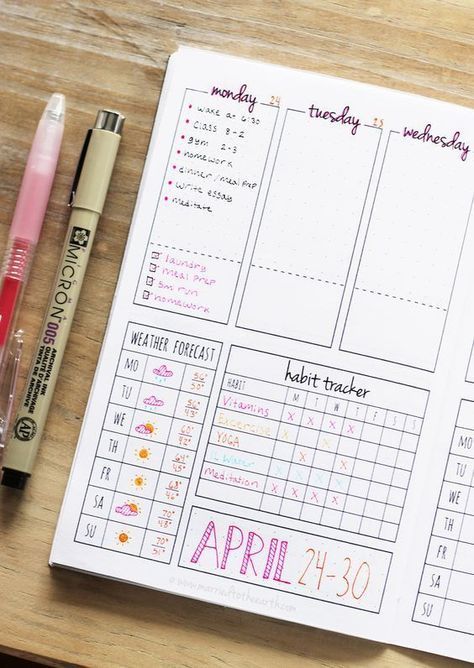 monday 24
wake at 6:30
class 8-2
gym 2-3
homework
dinner/meal prep
write essay
meditate
laundry
meal prep
3m run
homework
tuesday 25
wednesday
WEATHER FORECAST
MO 56° 50°
TU 56° 43°
WE 60° 42°
TH 64° 45°
FR 68° 46°
SA 70° 48°
SU 70° 51°
habit tracker
HABIT M T W T F S S
Vitamins X X X X
Excercise X X
YOGA X X
1L Water X X X X
Meditation X X X X
APRIL 24-30
© www.marriedtotheearth.com
MO
TU
WE
TH
FR
SA
SU
MICRON 005
ARCHIVAL INK
QUALITÉ ARCHIVES
TINTA DE ARCHIVO
AP